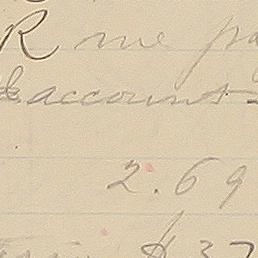 R me pa
& accounts
2.69
$ 37